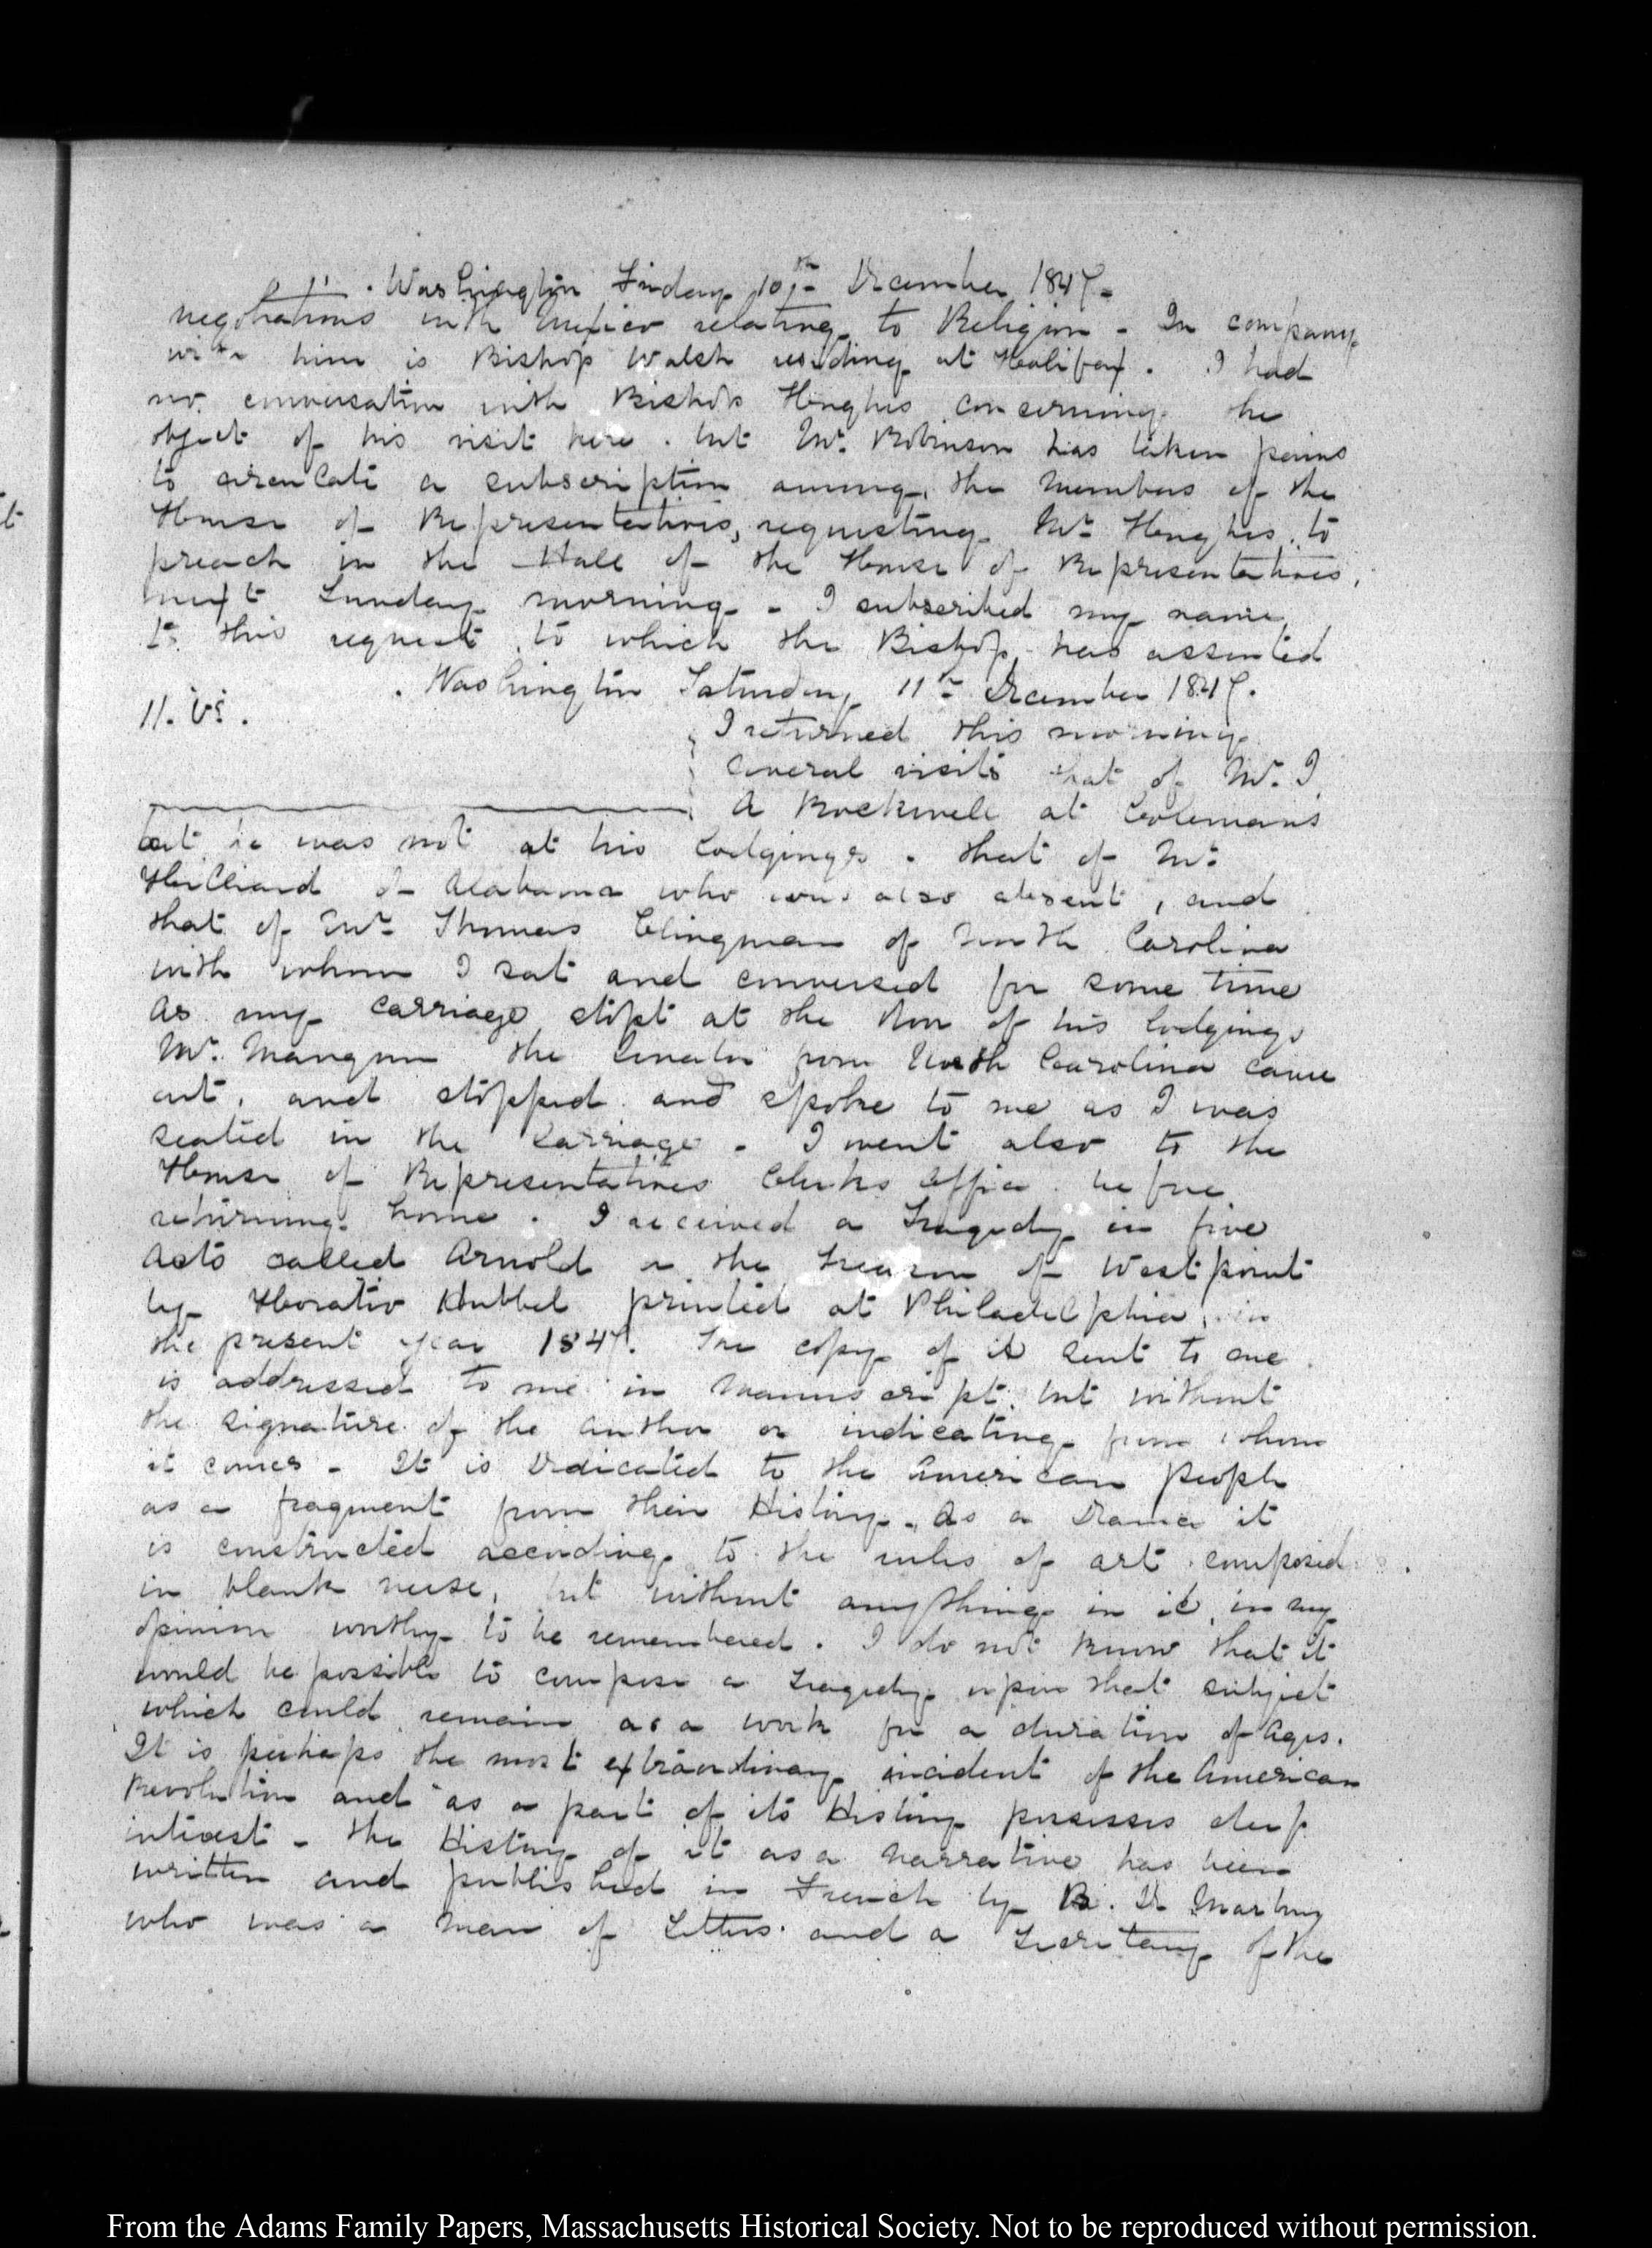 Washington Friday 10th December 1847.
negotiations with Mexico relating to Religion - In company
with him is Bishop Walsh residing at Halifax. I had
no conversation with Bishop Hughes concerning the
object of his visit here. but Mr. Robinson has taken pains
to circulate a subscription among the Members of the
House of Representatives, requesting Mr. Hughes to
preach in the Hall of the House of Representatives,
next Sunday morning - I subscribed my name
to this request to which the Bishop has assented
Washington Saturday 11th December 1847.
11. VI.
I returned this morning
several visits that of Mr. J
A Rockwell at Colemans
but he was not at his lodgings. that of Mr.
Hilliard of Alabama who was also absent, and
that of Mr. Thomas Clingman of North Carolina
with whom I sat and conversed for some time
As my carriage stopt at the door of his lodgings
Mr. Mangum the Senator from North Carolina came
out, and stopped and spoke to me as I was
seated in the Carriage - I went also to the
House of Representatives Clerks Office before
returning home. I received a Tragedy in five
Acts called Arnold or the Treason of West point
by Horatio Hubbel printed at Philadelphia, in
the present year 1847. The copy of it sent to me
is addressed to me in Manuscript, but without
the signature of the author or indicating from whom
it comes - It is Dedicated to the American People
as a fragment from their History. As a Drama it
is constructed according to the rules of art composed
in blank verse, but without any thing in it, in my
opinion worthy to be remembered. I do not know that it
would be possible to compose a tragedy upon that subject
which could remain as a work for a duration of Ages.
It is perhaps the most extraordinary incident of the American
Revolution and as a part of its History possesses deep
interest - the History of it as a narrative has been
written and published in French by B. De Marbois
who was a Man of Letters and a Secretary of the
From the Adams Family Papers, Massachusetts Historical Society. Not to be reproduced without permission.